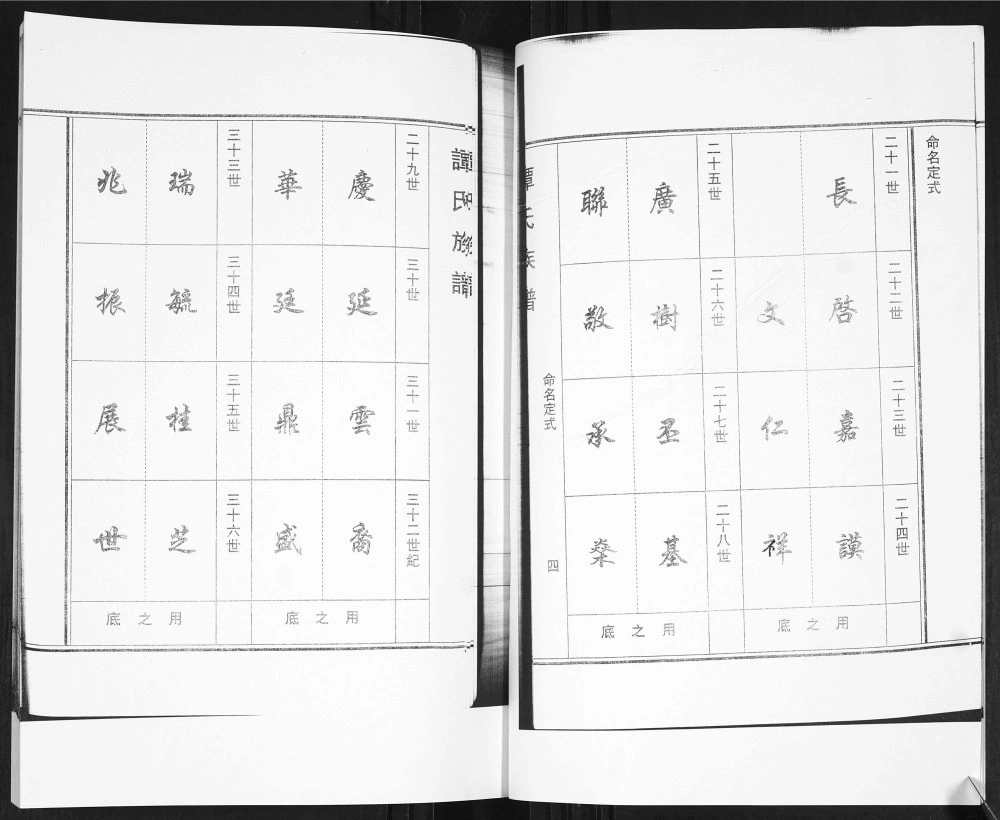 命名定式
二十一世
長
二十二世
啓
文
二十三世
嘉
仁
二十四世
謨
祥
用之底
二十五世
廣
聯
二十六世
樹
敬
二十七世
丞
承
二十八世
基
燊
用之底
譚氏族譜
命名定式
四
譚氏族譜
二十九世
慶
華
三十世
延
廷
三十一世
雲
鼎
三十二世紀
喬
盛
用之底
三十三世
瑞
兆
三十四世
毓
振
三十五世
桂
展
三十六世
芝
世
用之底